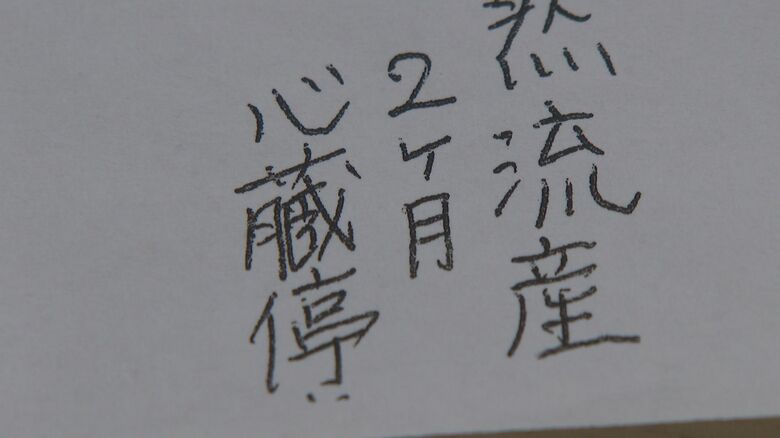 然流産
2ヶ月
心臓停